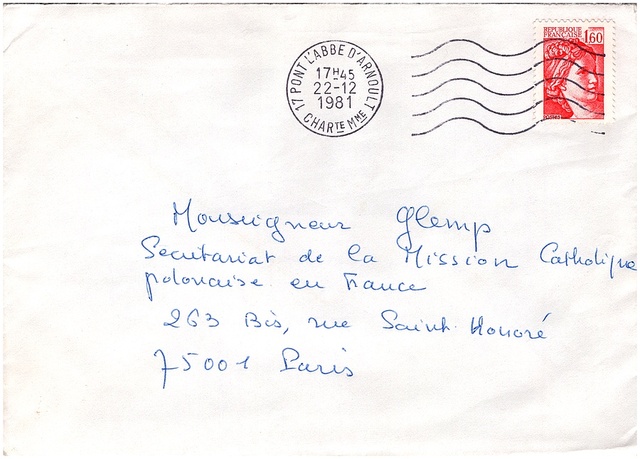 17 PONT L'ABBE D'ARNOULT
17H45
22-12
1981
CHARTE MME
REPUBLIQUE
FRANÇAISE
1,60
Monseigneur Glemp
Secrétariat de la Mission Catholique
polonaise en France
263 Bis, rue Saint-Honoré
75001 Paris